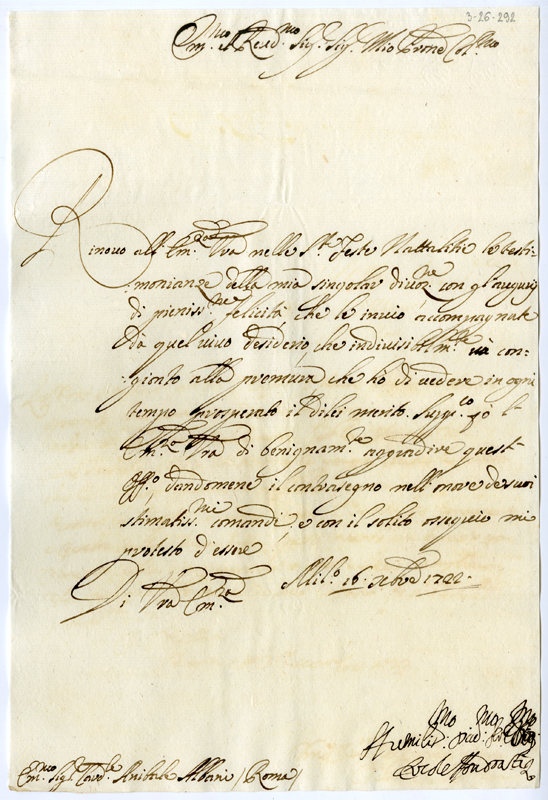 3-26-292
Em.mo e Reud.mo Sig.r Sig.r Mio Prone Col.mo
Rinouo all' Em.za Vra nelle S.te Feste Nattalitie le testi-
monianze della mia singolar diuoz.ne con gl'augurij
di pieniss.me felicità, che le inuio accompagnate
da quel viuo desiderio, che indiuisibilm.te và con-
gionto alla premura che hò di uedere in ogni
tempo prosperato il di lei merito. Supp.co l'
Em.za Vra di benignam.te aggradire quest'
Off.o dandomene il contrasegno nell'onore de suoi
stimatiss.mi comandi, e con il solito ossequio mi
protesto d'essere
Di Vra Em.za Mil.o 16. Xbre 1722.
Humiliss.mo Diu.mo
Em.mo Sig.r Card.le Anibale Albani / Roma /